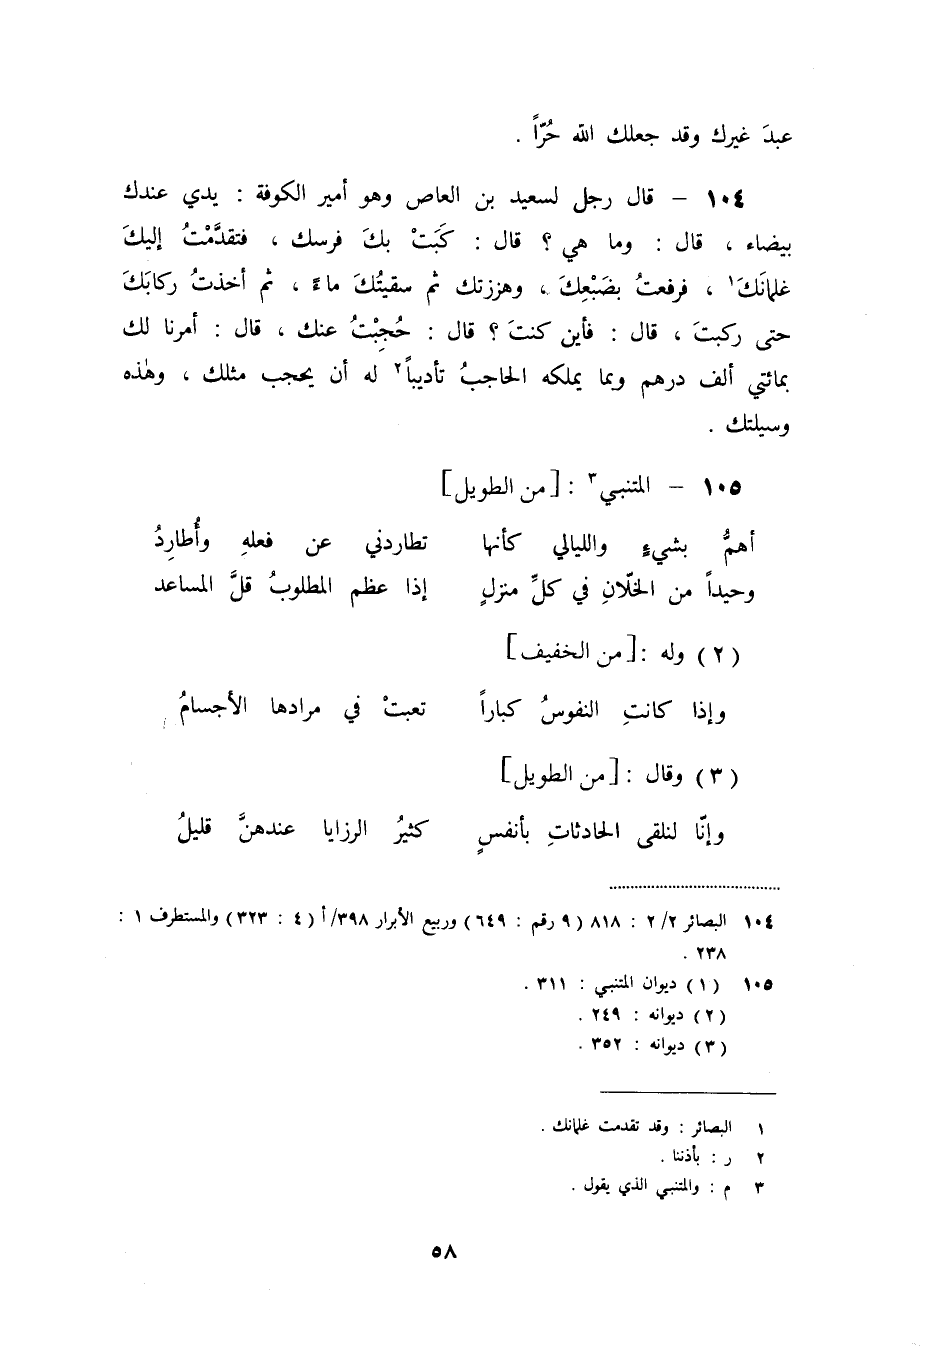 عبدَ غيرك وقد جعلك الله حُرّاً .
١٠٤ – قال رجل لسعيد بن العاص وهو أمير الكوفة : يدي عندك
بيضاء ، قال : وما هي ؟ قال : كَبَتْ بكَ فرسك ، فتقدَّمْتُ إليكَ
غلمانَكَ١ ، فرفعتُ بضَبْعِكَ ، وهززتك ثم سقيتُكَ ماءً ، ثم أخذتُ ركابَكَ
حتى ركبتَ ، قال : فأين كنتَ ؟ قال : حُجِبْتُ عنك ، قال : أمرنا لك
بمائتي ألف درهم وبما يملكه الحاجبُ تأديباً٢ له أن يحجب مثلك ، وهٰذه
وسيلتك .
١٠٥ – المتنبي٣ : [من الطويل]
أهمُّ بشيءٍ والليالي كأنها تطاردني عن فعلهِ وأُطارِدُ
وحيداً من الخلّانِ في كلِّ منزلٍ إذا عظم المطلوبُ قلَّ المساعد
(٢) وله : [من الخفيف]
وإذا كانتِ النفوسُ كباراً تعبتْ في مرادها الأجسامُ
(٣) وقال : [من الطويل]
وإنّا لنلقى الحادثاتِ بأنفسٍ كثيرُ الرزايا عندهنَّ قليلُ
١٠٤ البصائر ٢/٢ : ٨١٨ (٩ رقم : ٦٤٩) وربيع الأبرار ٣٩٨/أ (٤ : ٣٢٣) والمستطرف ١ :
٢٣٨ .
١٠٥ (١) ديوان المتنبي : ٣١١ .
(٢) ديوانه : ٢٤٩ .
(٣) ديوانه : ٣٥٢ .
١ البصائر : وقد تقدمت غلمانك .
٢ ر : بأذننا .
٣ م : والمتنبي الذي يقول .
٥٨